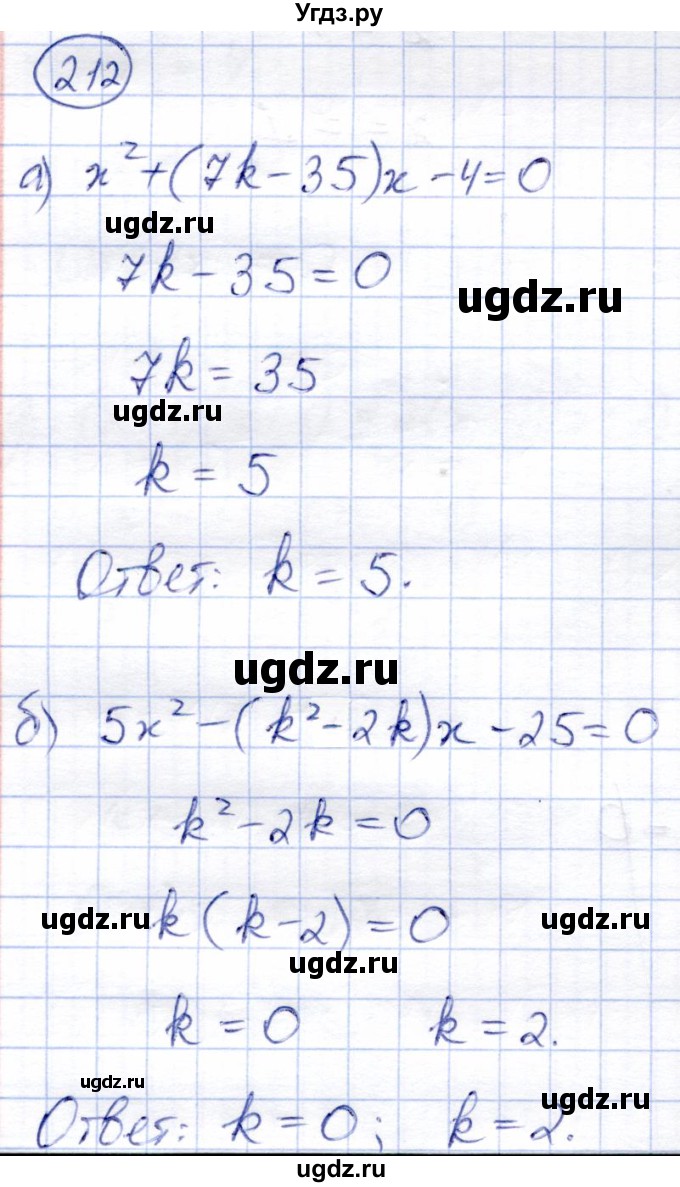 Угдз.ру
212
а) x² + (7k - 35)x - 4 = 0
ugdz.ru
7k - 35 = 0
ugdz.ru
7k = 35
ugdz.ru
k = 5
Ответ: k = 5.
ugdz.ru
б) 5x² - (k² - 2k)x - 25 = 0
k² - 2k = 0
ugdz.ru k(k - 2) = 0 ugdz.ru
ugdz.ru
k = 0 k = 2.
ugdz.ru
ugdz.ru
Ответ: k = 0; k = 2.
ugdz.ru